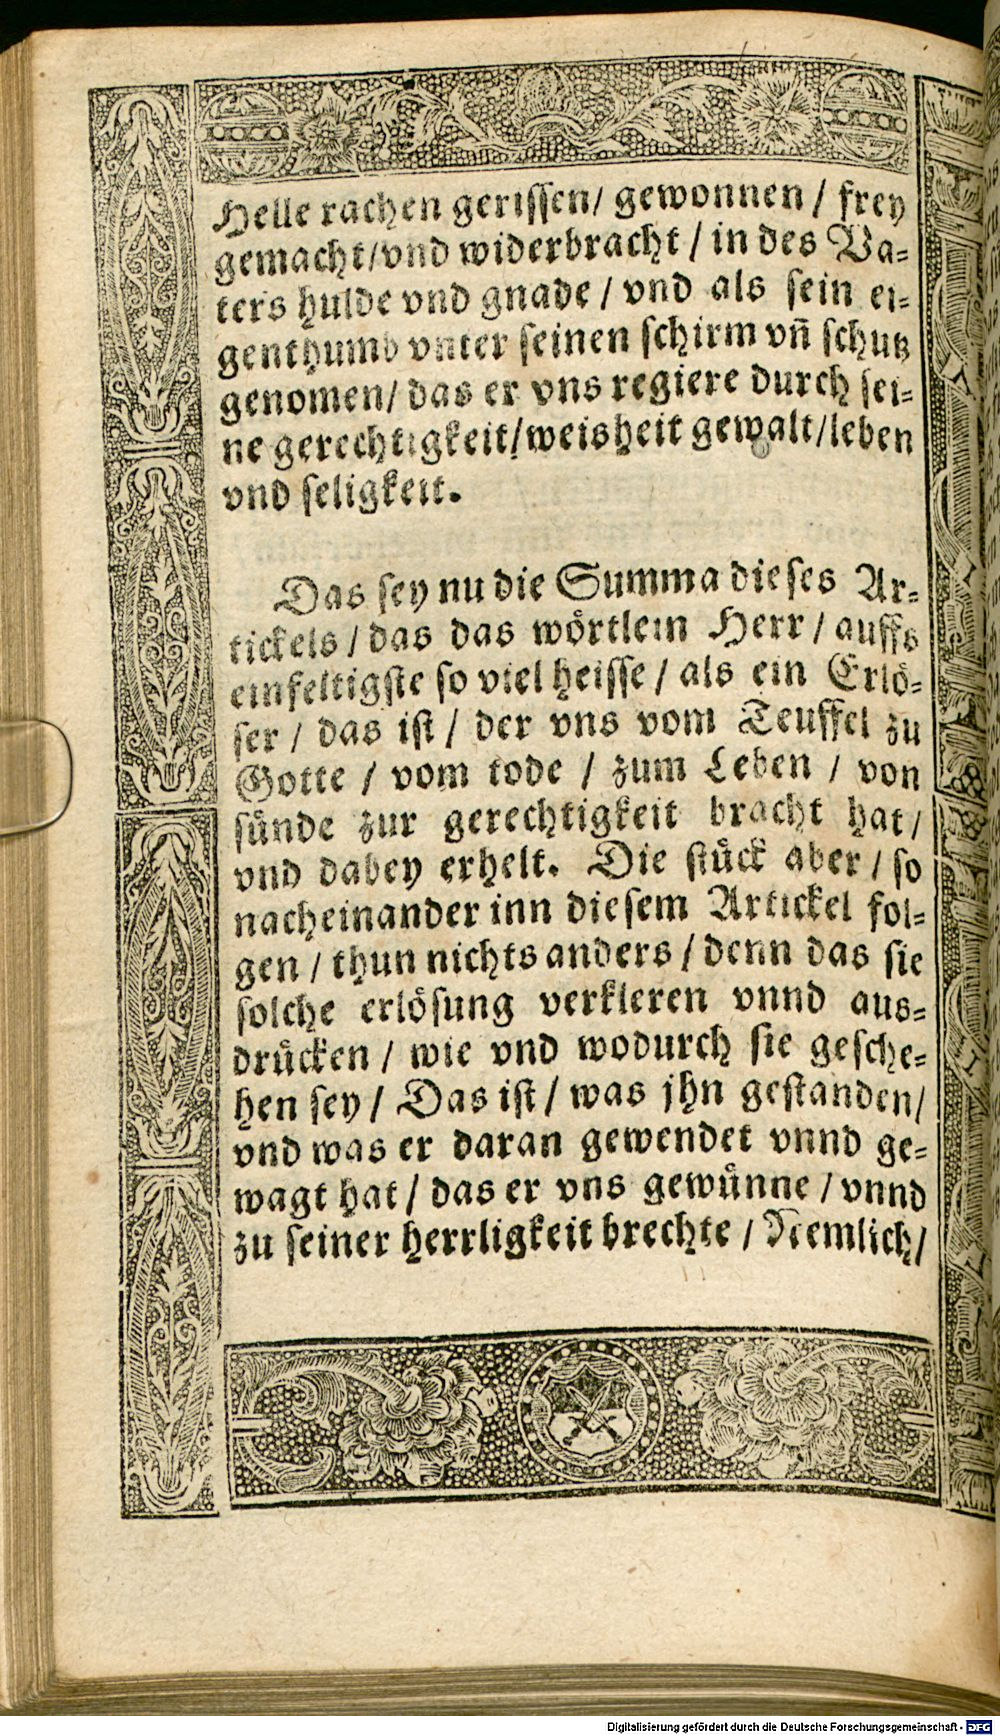 Helle rachen gerissen/ gewonnen / frey
gemacht/vnd widerbracht / in des Va-
ters hulde vnd gnade / vnd als sein ei-
genthumb vnter seinen schirm vn̄ schutz
genomen/ das er vns regiere durch sei-
ne gerechtigkeit/weisheit gewalt/leben
vnd seligkeit.
Das sey nu die Summa dieses Ar-
tickels / das das wörtlein Herr / auffs
einfeltigste so viel heisse / als ein Erlö-
ser / das ist / der vns vom Teuffel zu
Gotte / vom tode / zum Leben / von
sünde zur gerechtigkeit bracht hat/
vnd dabey erhelt. Die stück aber / so
nacheinander inn diesem Artickel fol-
gen / thun nichts anders / denn das sie
solche erlösung verkleren vnnd aus-
drücken / wie vnd wodurch sie gesche-
hen sey / Das ist / was jhn gestanden/
vnd was er daran gewendet vnnd ge-
wagt hat / das er vns gewünne / vnnd
zu seiner herrligkeit brechte / Nemlich/
Digitalisierung gefördert durch die Deutsche Forschungsgemeinschaft - DFG